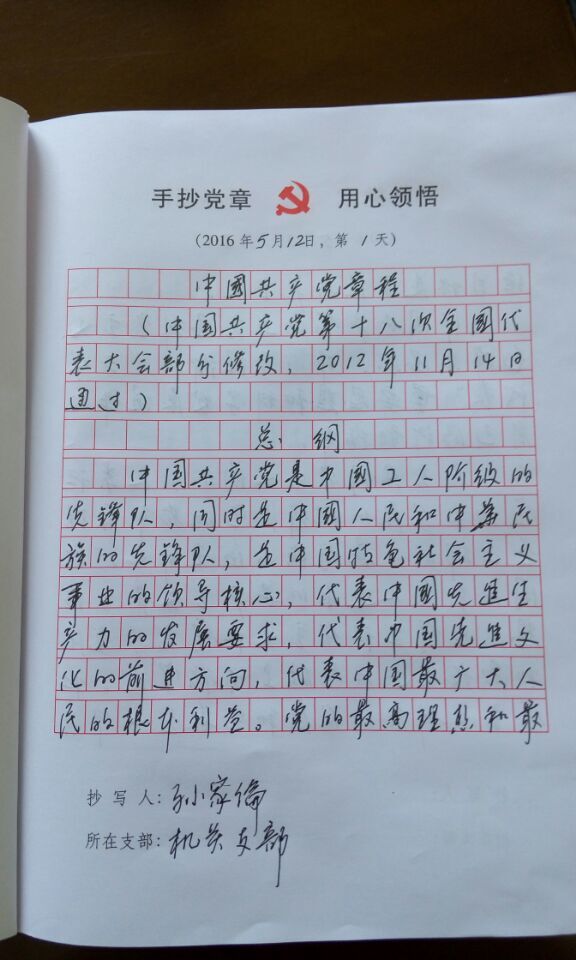 手抄党章 用心领悟
(2016年5月12日,第1天)
中国共产党章程
(中国共产党第十八次全国代
表大会部分修改,2012年11月14日
通过)
总纲
中国共产党是中国工人阶级的
先锋队,同时是中国人民和中华民
族的先锋队,是中国特色社会主义
事业的领导核心,代表中国先进生
产力的发展要求,代表中国先进文
化的前进方向,代表中国最广大人
民的根本利益。党的最高理想和最
抄写人:孙家伦
所在支部:机关支部